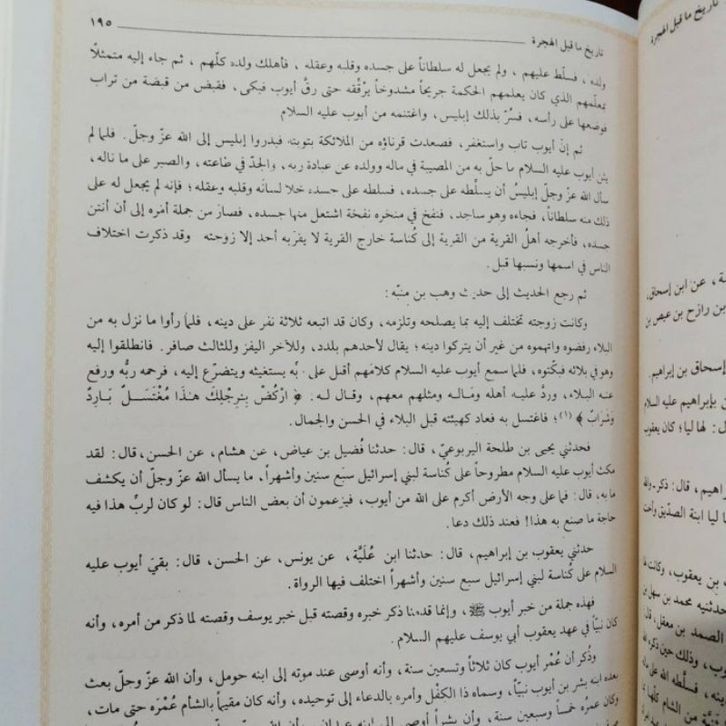 تاريخ ما قبل الهجرة
١٩٥
ولده، فسلّط عليهم، ولم يجعل له سلطاناً على جسده وقلبه وعقله، فأهلك ولده كلّهم، ثم جاء إليه متمثلًا
بمعلّمهم الذي كان يعلمهم الحكمة جريحاً مشدوخاً يرقّقه حتى رقّ أيوب فبكى، فقبض من قبضة من تراب
فوضعها على رأسه، فسُرّ بذلك إبليس، واغتنمه من أيوب عليه السلام
ثم إنّ أيوب تاب واستغفر، فصعدت قرناؤه من الملائكة بتوبته فبدروا إبليس إلى الله عزّ وجلّ. فلما لم
يثن أيوب عليه السلام ما حلّ به من المصيبة في ماله وولده عن عبادة ربه، والجدّ في طاعته، والصبر على ما ناله،
سأل الله عزّ وجلّ إبليسُ أن يسلّطه على جسده، فسلطه على جسده خلا لسانه وقلبه وعقله؛ فإنه لم يجعل له على
ذلك منه سلطاناً، فجاءه وهو ساجد، فنفخ في منخره نفخة اشتعل منها جسده، فصار من جملة أمره إلى أن أنتن
جسده، فأخرجه أهلُ القرية من القرية إلى كُناسة خارج القرية لا يقربه أحد إلا زوجته وقد ذكرت اختلاف
الناس في اسمها ونسبها قبل.
ثم رجع الحديث إلى حديث وهب بن منبّه:
وكانت زوجته تختلف إليه بما يصلحه وتلزمه، وكان قد اتبعه ثلاثة نفر على دينه، فلما رأوا ما نزل به من
البلاء رفضوه واتهموه من غير أن يتركوا دينه؛ يقال لأحدهم بلدد، وللآخر اليفز وللثالث صافر. فانطلقوا إليه
وهو في بلائه فبكّتوه، فلما سمع أيوب عليه السلام كلامهم أقبل على ربّه يستغيثه ويتضرّع إليه، فرحمه ربُّه ورفع
عنه البلاء، وردَّ عليه أهله وماله ومثلهم معهم، وقال له: ﴿ ارْكُضْ بِرِجْلِكَ هَذَا مُغْتَسَلٌ بَارِدٌ
وَشَرَابٌ ﴾(١)؛ فاغتسل به فعاد كهيئته قبل البلاء في الحسن والجمال.
فحدثني يحيى بن طلحة اليربوعيّ، قال: حدثنا فُضيل بن عياض، عن هشام، عن الحسن، قال: لقد
مكث أيوب عليه السلام مطروحاً على كُناسة لبني إسرائيل سبع سنين وأشهراً، ما يسأل الله عزّ وجلّ أن يكشف
ما به، قال: فما على وجه الأرض أكرم على الله من أيوب، فيزعمون أن بعض الناس قال: لو كان لربّ هذا فيه
حاجة ما صنع به هذا! فعند ذلك دعا.
حدثني يعقوب بن إبراهيم، قال: حدثنا ابن عُليَّة، عن يونس، عن الحسن، قال: بقيَ أيوب عليه
السلام على كُناسة لبني إسرائيل سبع سنين وأشهراً اختلف فيها الرواة.
فهذه جملة من خبر أيوب ﷺ، وإنما قدمنا ذكر خبره وقصته قبل خبر يوسف وقصته لما ذكر من أمره، وأنه
كان نبيّاً في عهد يعقوب أبي يوسف عليهم السلام.
وذُكر أن عُمْر أيوب كان ثلاثاً وتسعين سنة، وأنه أوصى عند موته إلى ابنه حومل، وأن الله عزّ وجلّ بعث
بعده ابنه بشر بن أيوب نبيّاً، وسماه ذا الكفْل وأمره بالدعاء إلى توحيده، وأنه كان مقيماً بالشأم عُمْرَه حتى مات،
وكان عمره خمساً وسبعين سنة، وأن بشراً أوصى إلى ابنه عبدان
تاريخ ما قبل الهجرة
عن ابن إسحاق،
بن رازح بن عيص بن
إسحاق بن إبراهيم.
بن بإبراهيم عليه السلام
لها ليا؛ كان يعقوب
ليا ابنة الصدّيق وأخت
بن يعقوب، وكانت
حدثنيه محمد بن سهل
الصمد بن معقل، قال